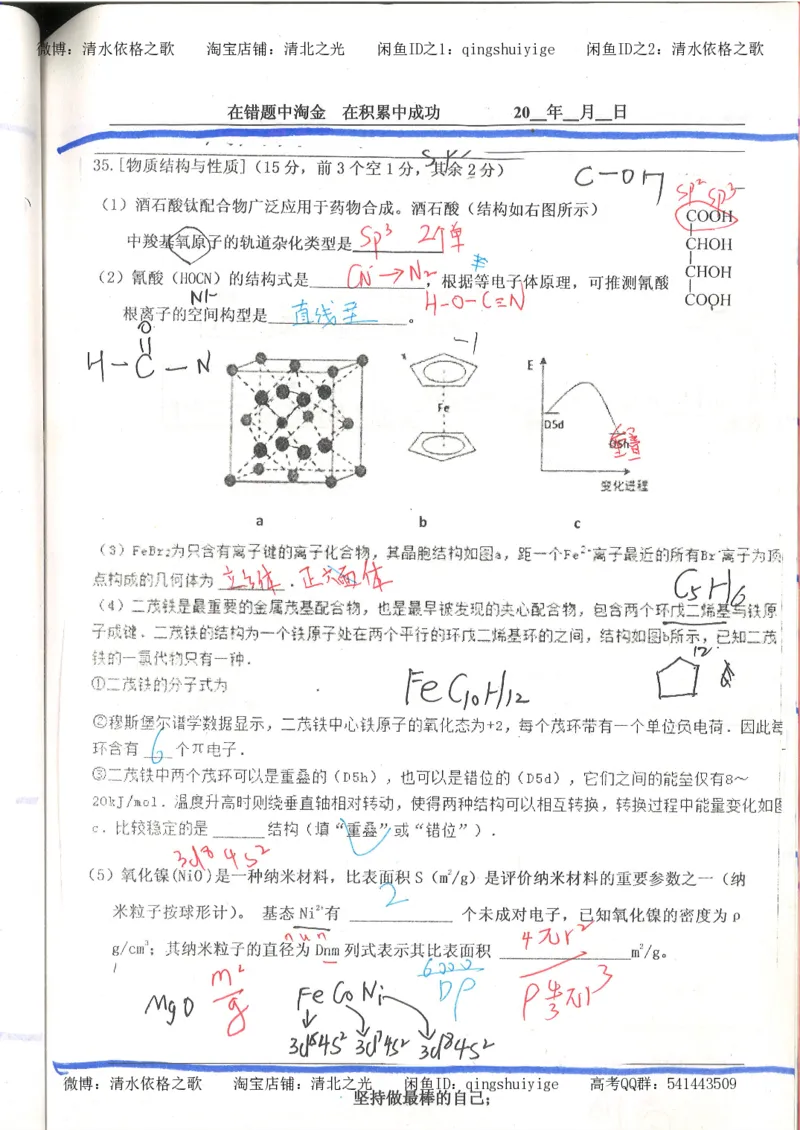 微博：清水依格之歌 淘宝店铺：清北之光 闲鱼ID之1：qingshuiyige 闲鱼ID之2：清水依格之歌
在错题中淘金 在积累中成功 20__年__月__日
35.[物质结构与性质]（15分，前3个空1分，其余2分）
C-OH
sp² sp³
（1）酒石酸钛配合物广泛应用于药物合成。酒石酸（结构如右图所示）
COOH
中羧基氧原子的轨道杂化类型是 sp³ 2个单
CHOH
CHOH
COOH
（2）氰酸（HOCN）的结构式是____，根据等电子体原理，可推测氰酸
CN⁻→N₂
H-O-C≡N
根离子的空间构型是 直线型 。
O
H-C-N
-1
Fe
E
D5d
D5h
重叠
变化进程
a b c
（3）FeBr₂为只含有离子键的离子化合物，其晶胞结构如图a，距一个Fe²⁺离子最近的所有Br⁻离子为顶
点构成的几何体为 立方体 . 正六面体
C5H6
（4）二茂铁是最重要的金属茂基配合物，也是最早被发现的夹心配合物，包含两个环戊二烯基与铁原
子成键．二茂铁的结构为一个铁原子处在两个平行的环戊二烯基环的之间，结构如图b所示，已知二茂
铁的一氯代物只有一种．
12
①二茂铁的分子式为
FeC₁₀H₁₂
②穆斯堡尔谱学数据显示，二茂铁中心铁原子的氧化态为+2，每个茂环带有一个单位负电荷．因此每
环含有 6 个π电子．
③二茂铁中两个茂环可以是重叠的（D5h），也可以是错位的（D5d），它们之间的能垒仅有8～
20kJ/mol．温度升高时则绕垂直轴相对转动，使得两种结构可以相互转换，转换过程中能量变化如图
c．比较稳定的是______结构（填“重叠”或“错位”）．
3d⁸4s²
（5）氧化镍(NiO)是一种纳米材料，比表面积S（m²/g）是评价纳米材料的重要参数之一（纳
米粒子按球形计）。 基态Ni²⁺有 2 个未成对电子，已知氧化镍的密度为ρ
g/cm³；其纳米粒子的直径为Dnm列式表示其比表面积 ______m²/g。
4πr²
6000
Dρ
MgO
m²
g
Fe Co Ni
3d⁶4s² 3d⁷4s² 3d⁸4s²
微博：清水依格之歌 淘宝店铺：清北之光 闲鱼ID：qingshuiyige 高考QQ群：541443509
坚持做最棒的自己；